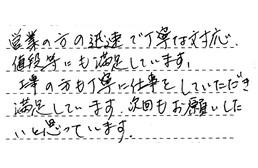 営業の方の迅速で丁寧な対応、
値段等にも満足しています。
工事の方も丁寧に仕事をしていただき
満足しています。次回もお願いした
いと思っています。